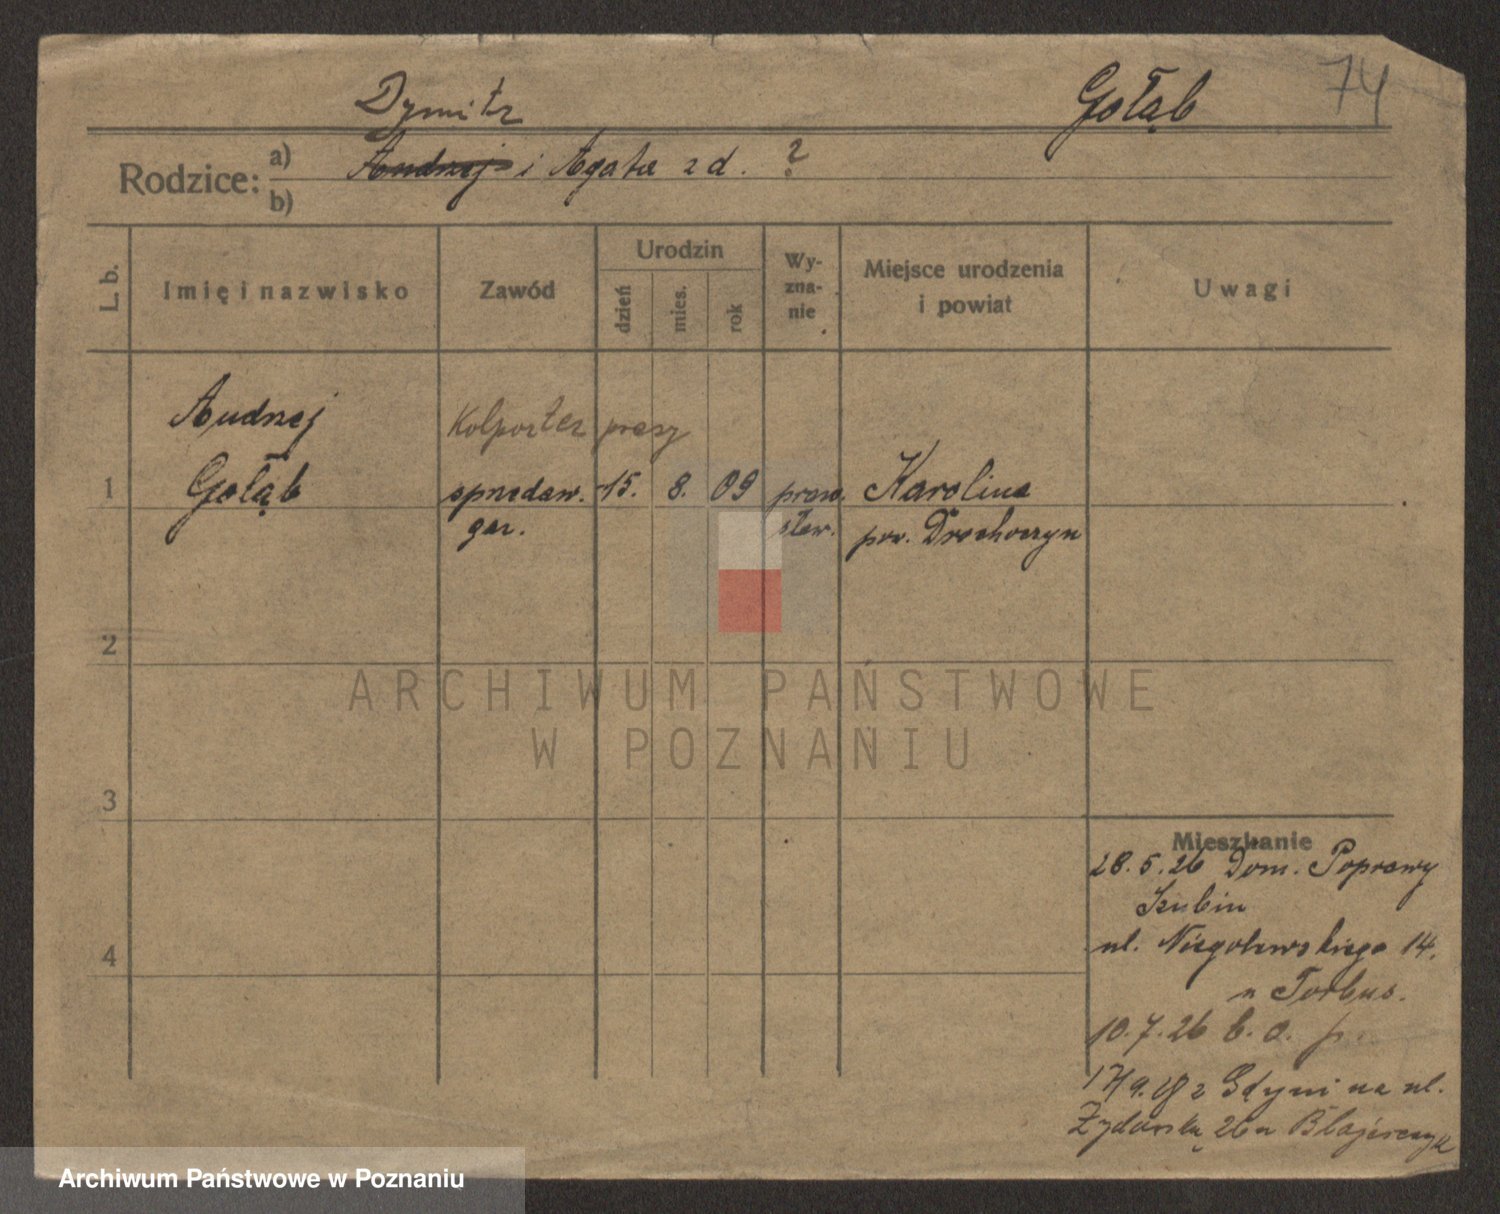 Dymitr Gołąb 74
Rodzice: a) Andrzej i Agata z d. ?
b)
L. b. Imię i nazwisko Zawód Urodzin dzień mies. rok Wyznanie Miejsce urodzenia i powiat Uwagi
Andrzej Kolporter prasy
1 Gołąb sprzedaw. 15. 8. 09 praw. Karolina
gaz. sław. pow. Drochoczyn
2
ARCHIWUM PAŃSTWOWE
W POZNANIU
3
Mieszkanie
28.5.26 Dom. Poprawy
Szubin
4 ul. Niegolewskiego 14.
n Torbus.
10.7.26 b. o. p.
17/9. z Gdyni na ul.
Żydowską 26 n Błajerczyk
Archiwum Państwowe w Poznaniu